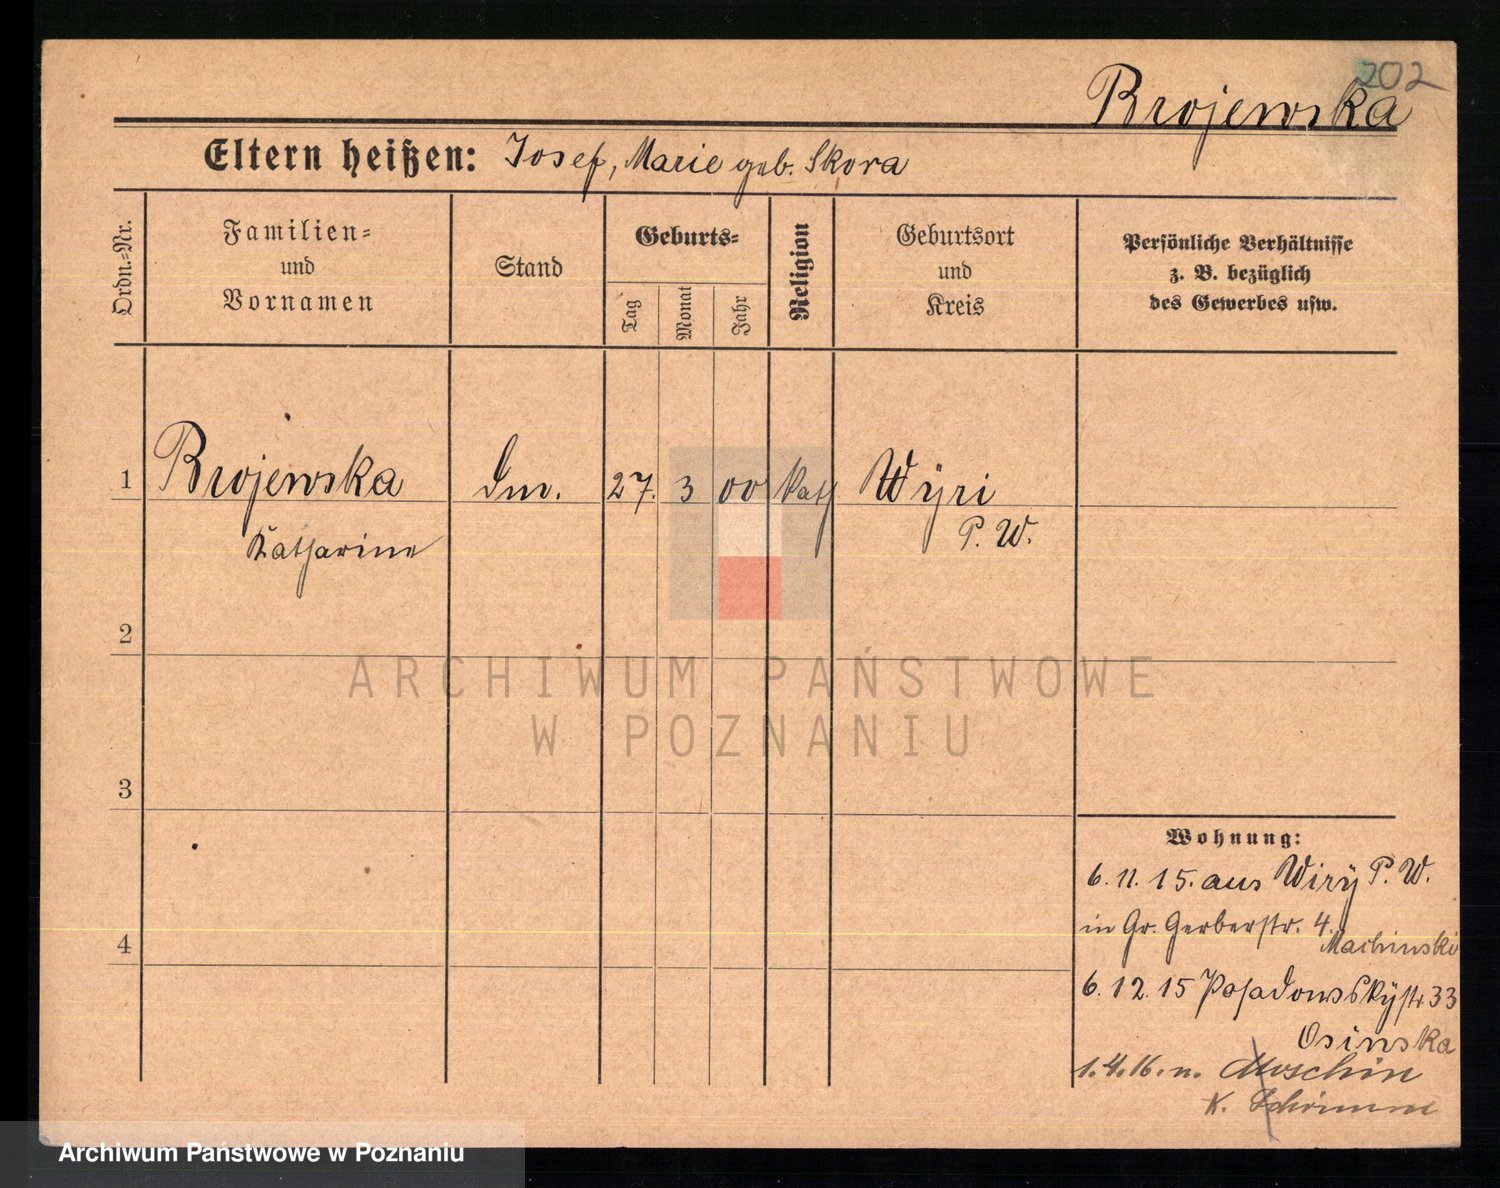 202
Brojewska
Eltern heißen: Josef, Marie geb. Skora
Ordn.-Nr.
Familien-
und
Vornamen
Stand
Geburts-
Tag
Monat
Jahr
Religion
Geburtsort
und
Kreis
Persönliche Verhältnisse
z. B. bezüglich
des Gewerbes usw.
1 Brojewska 27. 3 00 kath Wÿri
Katharine P. W.
2
3
4
Wohnung:
6. 11. 15. aus Wirÿ P. W.
in Gr. Gerberstr. 4.
Machinski
6. 12. 15 Posadowskÿstr. 33
Osinska
1. 4. 16. n. Moschin
K. Schrimm
ARCHIWUM PAŃSTWOWE
W POZNANIU
Archiwum Państwowe w Poznaniu